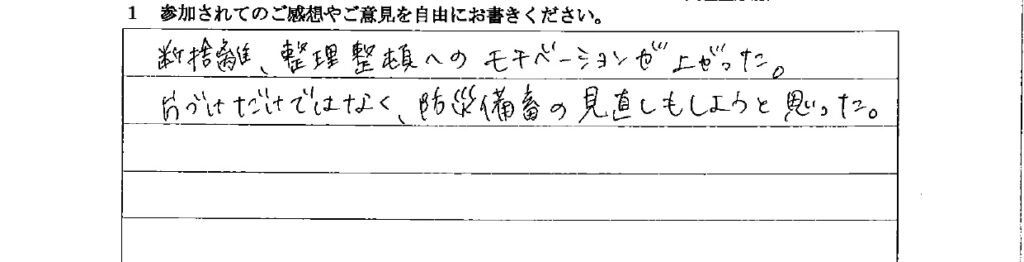 1 参加されてのご感想やご意見を自由にお書きください。
断捨離、整理整頓へのモチベーションが上がった。
片づけだけではなく、防災備蓄の見直しもしようと思った。